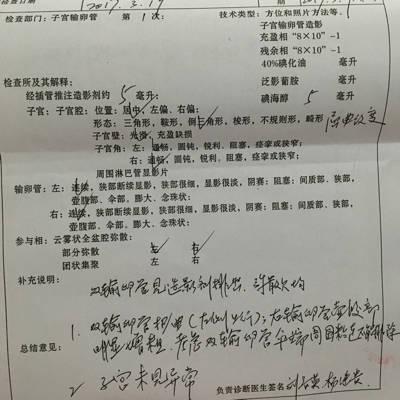 检查日期 2017.3.19
检查部门: 子宫输卵管 第1次: 技术类型: 方位和照片方法等。
子宫输卵管造影
充盈相“8×10”-1
残余相“8×10”-1
40%碘化油 毫升
检查所及其解释: 泛影葡胺 毫升
经插管推注造影剂约 5 毫升 碘海醇 5 毫升
子宫: 子宫腔: 位置: 居中, 左偏, 右偏;
形态: 三角形, 鞍形, 倒三角形, 梭形, 不规则形, 畸形
子宫壁: 光滑, 充盈缺损
子宫角: 左: 通畅, 圆钝, 锐利, 阻塞, 痉挛或狭窄;
右: 通畅, 圆钝, 锐利, 阻塞, 痉挛或狭窄;
周围淋巴管显影片
输卵管: 左: 连续, 狭部断续显影, 狭部很细, 显影很淡, 阴赛; 阻塞: 间质部、狭部,
壶腹部、伞部, 膨大、念珠状;
右: 连续, 狭部断续显影, 狭部很细, 显影很淡, 阴赛; 阻塞: 间质部、狭部,
壶腹部、伞部, 膨大、念珠状;
参与相: 云雾状全盆腔弥散: 左 右
部分弥散 左 右
团状集聚 左 右
补充说明:
双输卵管见造影剂排出
1. 双输卵管 右输卵管壶腹部
总结意见: 明显增粗, 考虑双输卵管伞端周围粘连
2 子宫未见异常
负责诊断医生签名